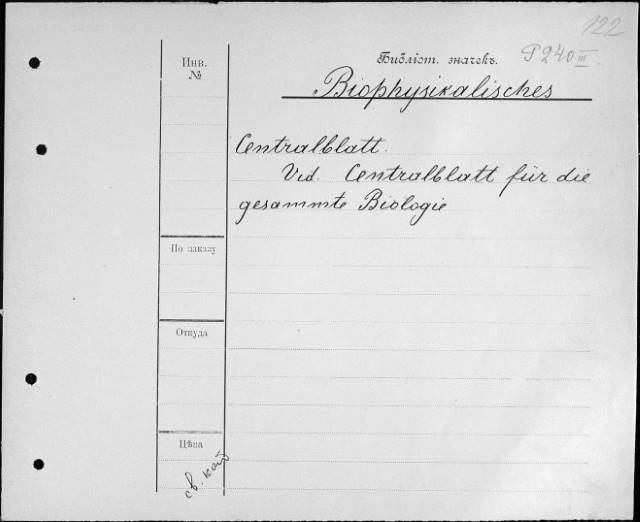 122
Инв.
№
Библіот. значекъ. P240 III
Biophysikalisches
Centralblatt.
Vid. Centralblatt für die
gesammte Biologie
По заказу
Откуда
Цѣна
св. каб